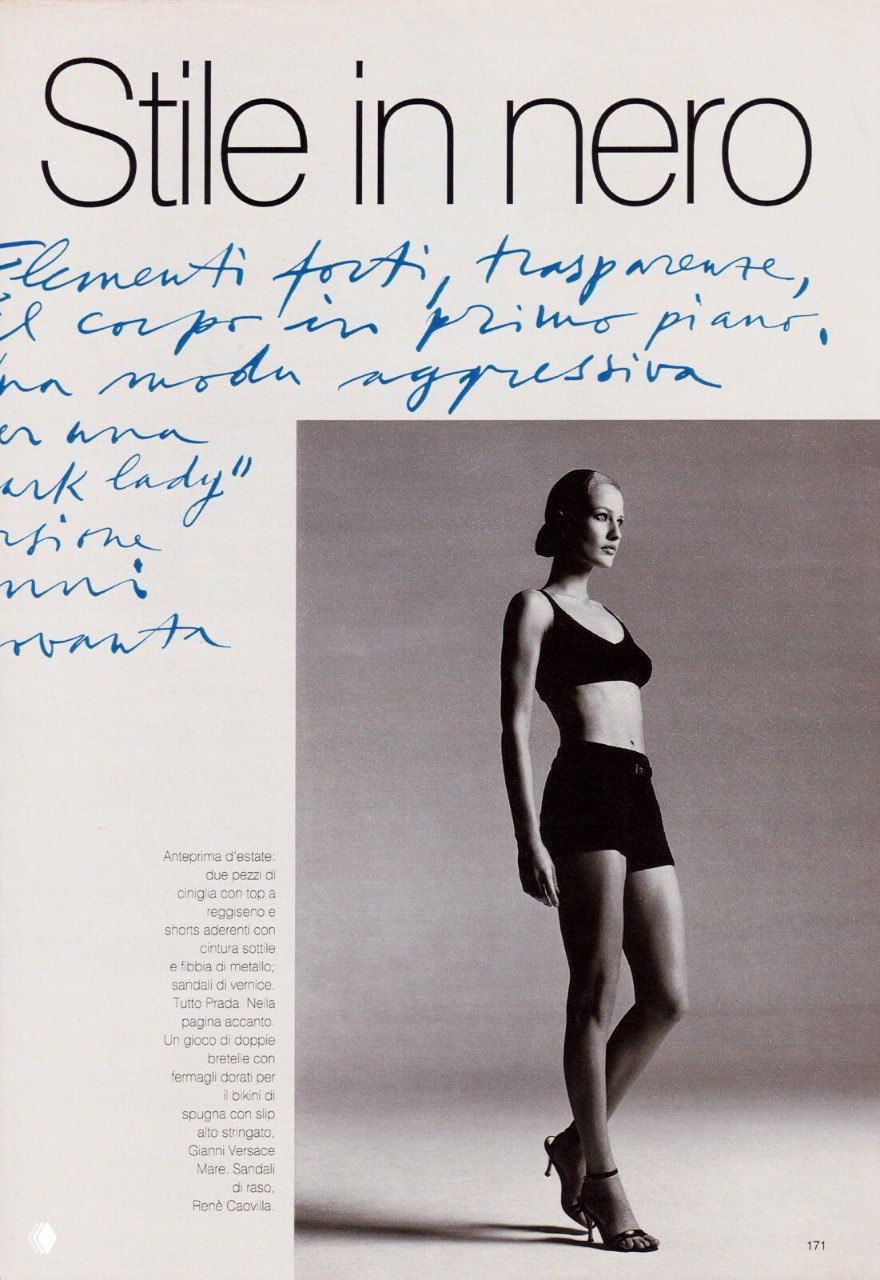 Stile in nero
Elementi forti, trasparenze,
il corpo in primo piano.
una moda aggressiva
er una
ark lady"
rsione
nni
ovanta
Anteprima d'estate:
due pezzi di
ciniglia con top a
reggiseno e
shorts aderenti con
cintura sottile
e fibbia di metallo;
sandali di vernice.
Tutto Prada. Nella
pagina accanto.
Un gioco di doppie
bretelle con
fermagli dorati per
il bikini di
spugna con slip
alto stringato,
Gianni Versace
Mare. Sandali
di raso,
Renè Caovilla.
171